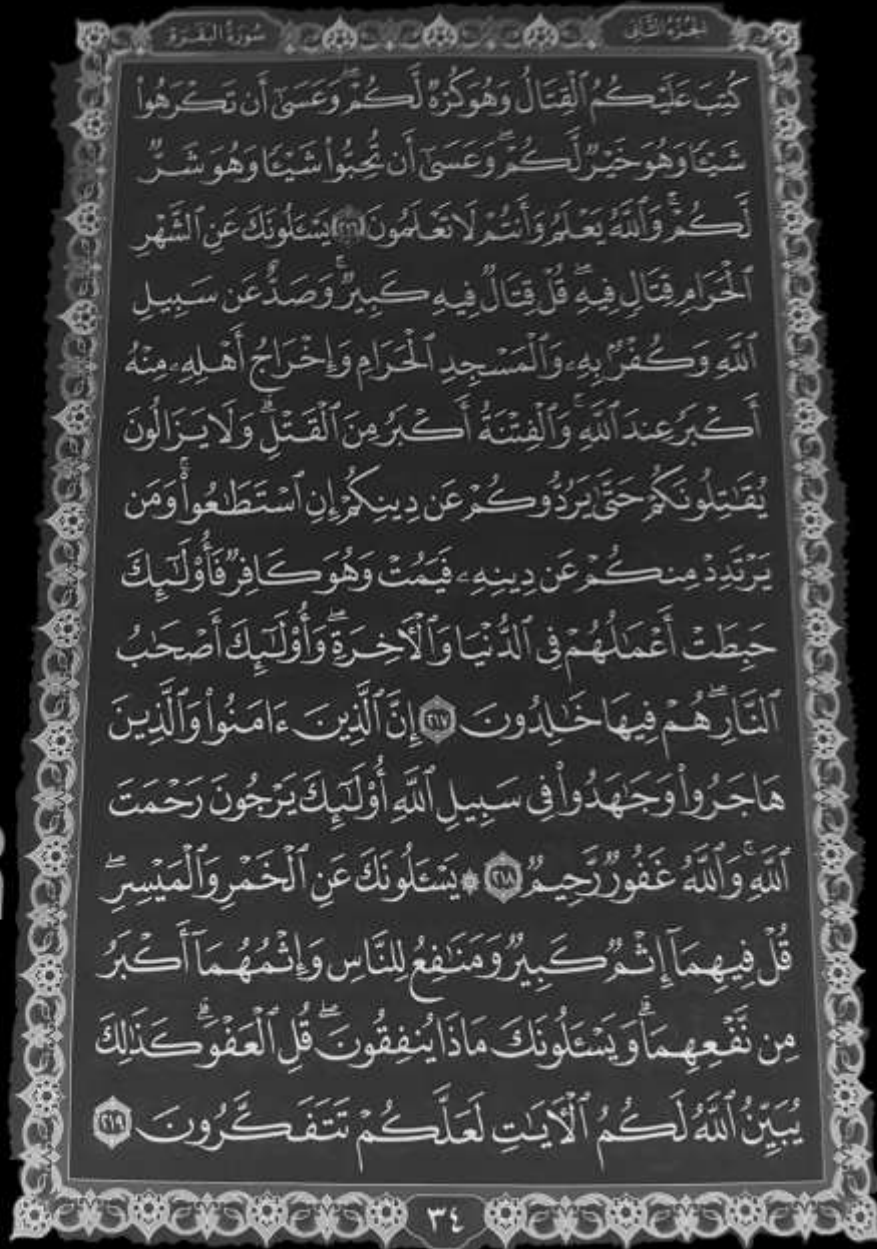 الجزء الثاني
سورة البقرة
كُتِبَ عَلَيْكُمُ ٱلْقِتَالُ وَهُوَ كُرْهٌ لَّكُمْ ۖ وَعَسَىٰٓ أَن تَكْرَهُوا۟
شَيْـًٔا وَهُوَ خَيْرٌ لَّكُمْ ۖ وَعَسَىٰٓ أَن تُحِبُّوا۟ شَيْـًٔا وَهُوَ شَرٌّ
لَّكُمْ ۗ وَٱللَّهُ يَعْلَمُ وَأَنتُمْ لَا تَعْلَمُونَ ٢١٦ يَسْـَٔلُونَكَ عَنِ ٱلشَّهْرِ
ٱلْحَرَامِ قِتَالٍ فِيهِ ۖ قُلْ قِتَالٌ فِيهِ كَبِيرٌ ۚ وَصَدٌّ عَن سَبِيلِ
ٱللَّهِ وَكُفْرٌۢ بِهِۦ وَٱلْمَسْجِدِ ٱلْحَرَامِ وَإِخْرَاجُ أَهْلِهِۦ مِنْهُ
أَكْبَرُ عِندَ ٱللَّهِ ۚ وَٱلْفِتْنَةُ أَكْبَرُ مِنَ ٱلْقَتْلِ ۗ وَلَا يَزَالُونَ
يُقَـٰتِلُونَكُمْ حَتَّىٰ يَرُدُّوكُمْ عَن دِينِكُمْ إِنِ ٱسْتَطَـٰعُوا۟ ۚ وَمَن
يَرْتَدِدْ مِنكُمْ عَن دِينِهِۦ فَيَمُتْ وَهُوَ كَافِرٌ فَأُو۟لَـٰٓئِكَ
حَبِطَتْ أَعْمَـٰلُهُمْ فِى ٱلدُّنْيَا وَٱلْـَٔاخِرَةِ ۖ وَأُو۟لَـٰٓئِكَ أَصْحَـٰبُ
ٱلنَّارِ ۖ هُمْ فِيهَا خَـٰلِدُونَ ٢١٧ إِنَّ ٱلَّذِينَ ءَامَنُوا۟ وَٱلَّذِينَ
هَاجَرُوا۟ وَجَـٰهَدُوا۟ فِى سَبِيلِ ٱللَّهِ أُو۟لَـٰٓئِكَ يَرْجُونَ رَحْمَتَ
ٱللَّهِ ۚ وَٱللَّهُ غَفُورٌ رَّحِيمٌ ٢١٨ ۞ يَسْـَٔلُونَكَ عَنِ ٱلْخَمْرِ وَٱلْمَيْسِرِ ۖ
قُلْ فِيهِمَآ إِثْمٌ كَبِيرٌ وَمَنَـٰفِعُ لِلنَّاسِ وَإِثْمُهُمَآ أَكْبَرُ
مِن نَّفْعِهِمَا ۗ وَيَسْـَٔلُونَكَ مَاذَا يُنفِقُونَ ۖ قُلِ ٱلْعَفْوَ ۗ كَذَٰلِكَ
يُبَيِّنُ ٱللَّهُ لَكُمُ ٱلْـَٔايَـٰتِ لَعَلَّكُمْ تَتَفَكَّرُونَ ٢١٩
٣٤